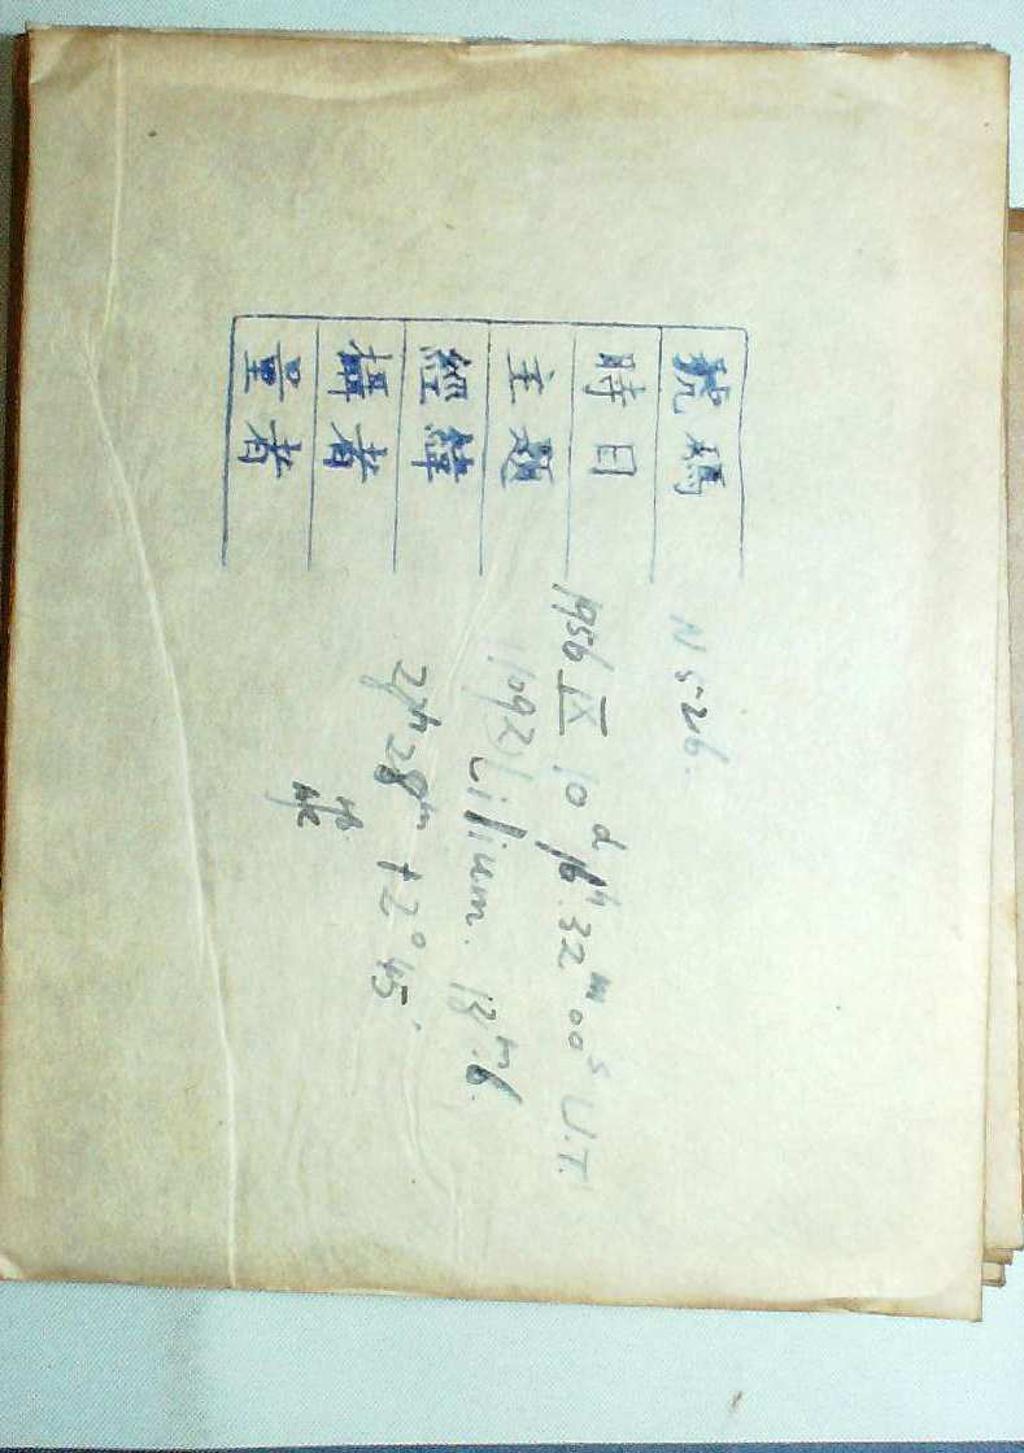 號碼 N 5-26.
時日 1956 IX 10ᵈ 16ʰ.32ᵐ00ˢ U.T.
主題 1092 Lilium. 13ᵐ.6.
經緯 28ᵐ +2° 45′
攝者
量者